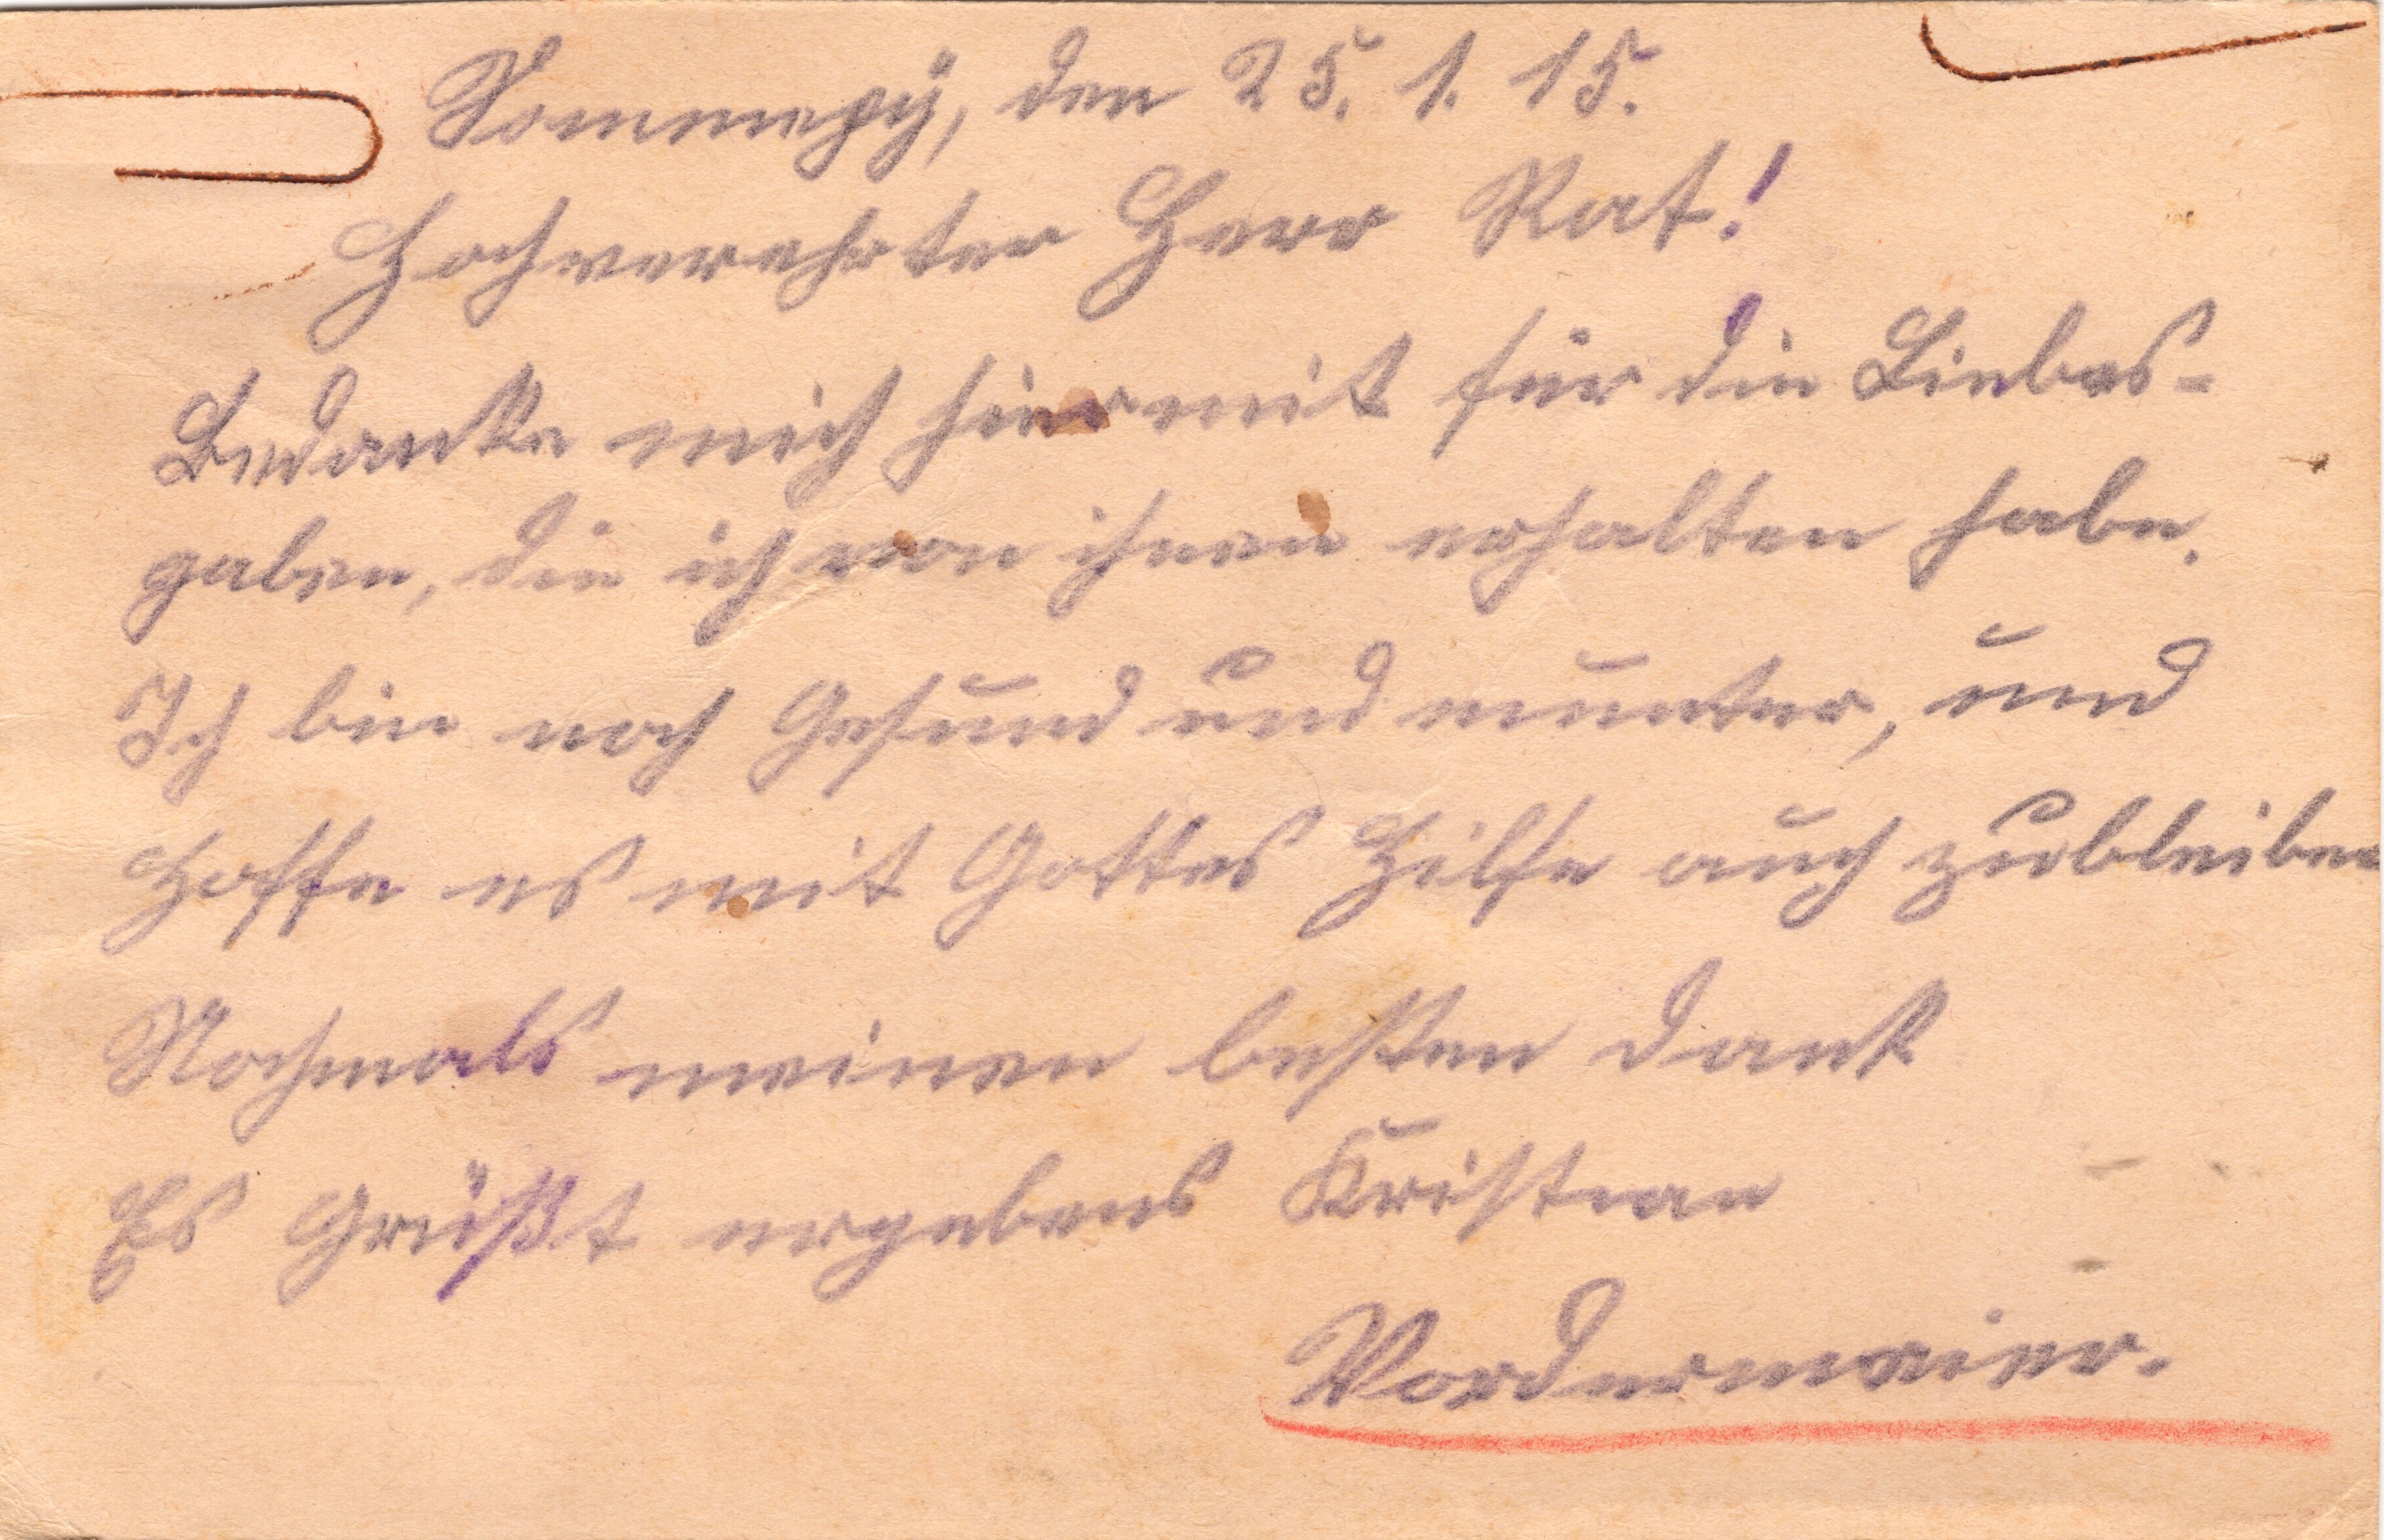 Sommepy, den 25. 1. 15.
Hochverehrter Herr Rat!
Bedanke mich hiermit für die Liebes-
gaben, die ich von ihnen erhalten habe.
Ich bin noch Gesund und munter, und
Hoffe es mit Gottes Hilfe auch zubleiben
Nochmals meinen besten Dank
Es Grüßt ergebens Kristian
Vordermaier.